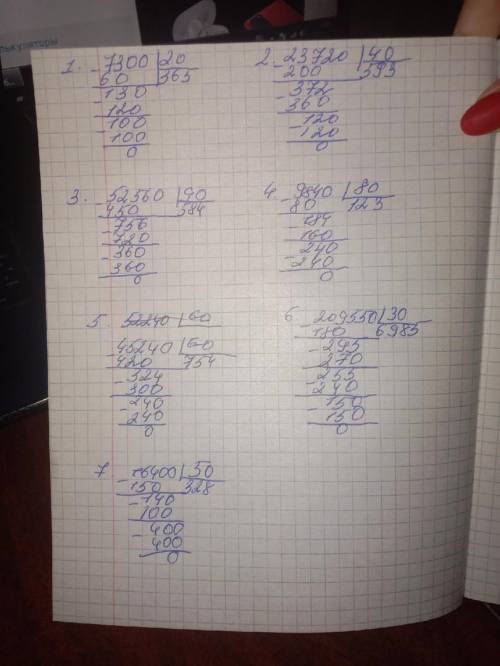 лькуляторы
1. -7300 |20
60 365
-130
120
-100
100
0
2. -23720 |40
200 593
-372
360
-120
120
0
3. -52560 |90
450 584
-756
720
-360
360
0
4. -9840 |80
80 123
-184
160
-240
240
0
5. 52240 |60
-45240 |60
420 754
-324
300
-240
240
0
6. -209550 |30
180 6985
-295
270
-255
240
-150
150
0
7. -16400 |50
150 328
-140
100
-400
400
0